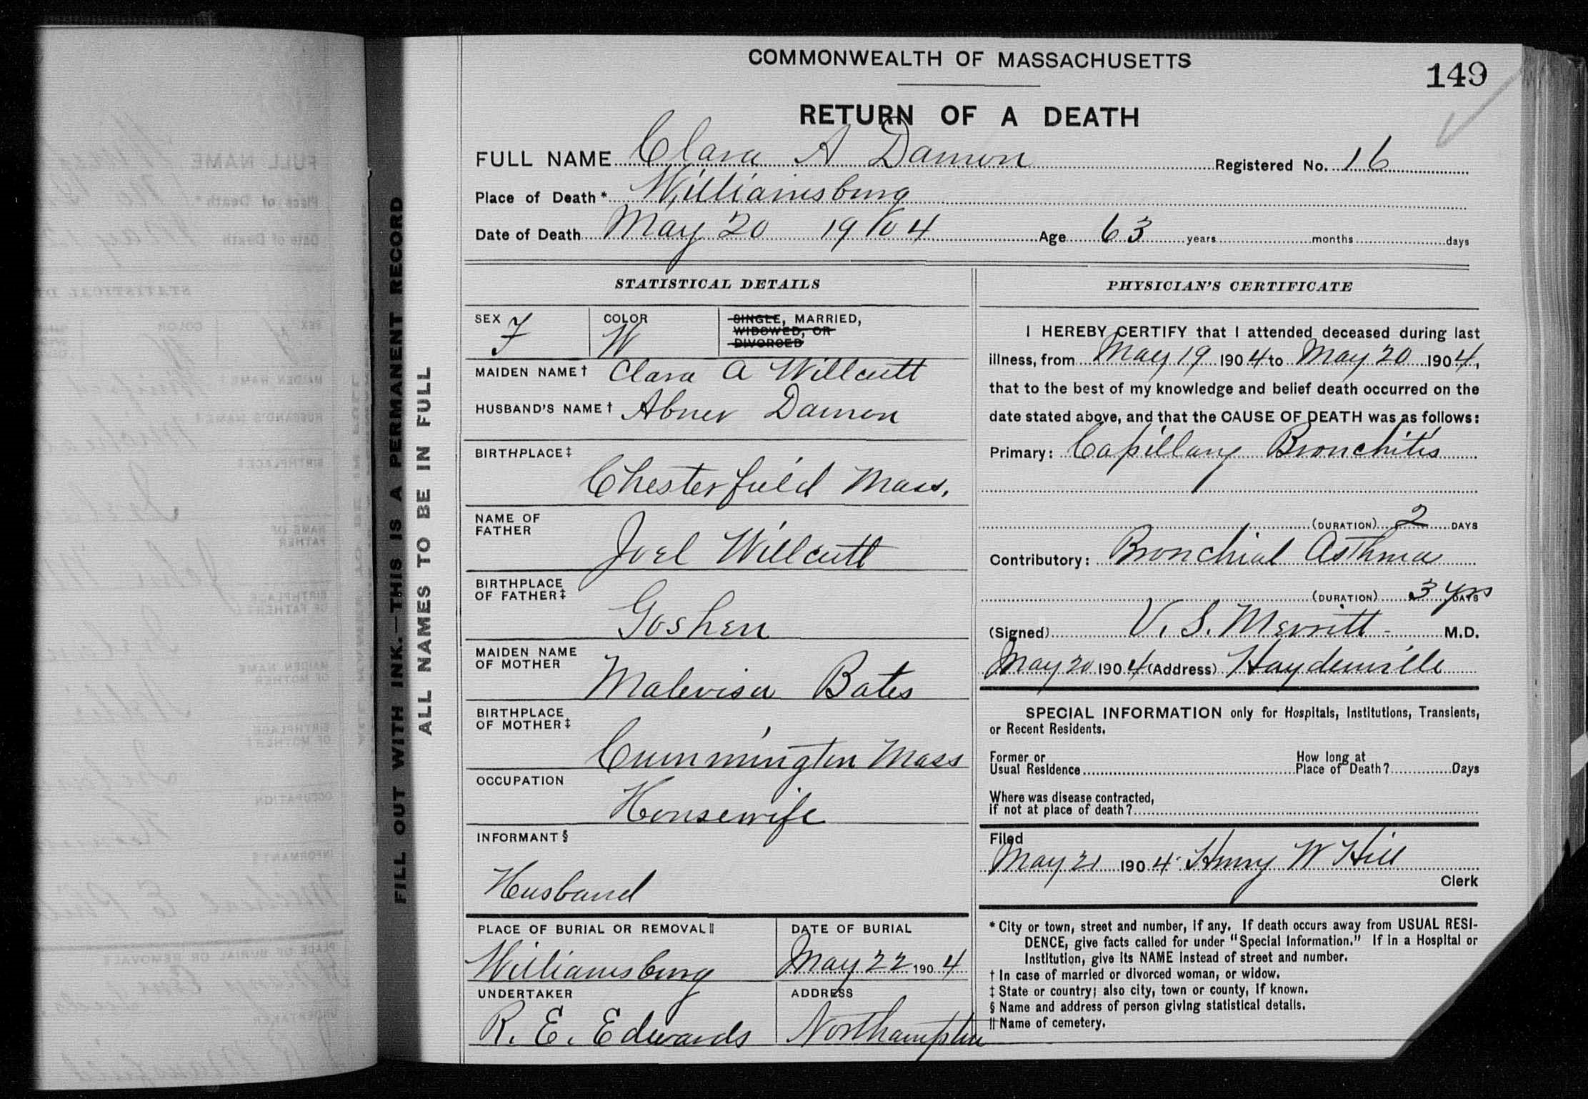 COMMONWEALTH OF MASSACHUSETTS
149
RETURN OF A DEATH
FULL NAME Clara A Damon Registered No. 16
Place of Death* Williamsburg
Date of Death May 20 1904 Age 63 years months days
FILL OUT WITH INK.—THIS IS A PERMANENT RECORD
ALL NAMES TO BE IN FULL
STATISTICAL DETAILS
SEX F COLOR W SINGLE, MARRIED,
WIDOWED, OR
DIVORCED
MAIDEN NAME† Clara A Willcutt
HUSBAND'S NAME† Abner Damon
BIRTHPLACE‡
Chesterfield Mass.
NAME OF
FATHER
Joel Willcutt
BIRTHPLACE
OF FATHER‡
Goshen
MAIDEN NAME
OF MOTHER
Malevisa Bates
BIRTHPLACE
OF MOTHER‡
Cummington Mass
OCCUPATION
Housewife
INFORMANT§
Husband
PLACE OF BURIAL OR REMOVAL‖
Williamsburg
DATE OF BURIAL
May 22 1904
UNDERTAKER
R. E. Edwards
ADDRESS
Northampton
PHYSICIAN'S CERTIFICATE
I HEREBY CERTIFY that I attended deceased during last
illness, from May 19 1904 to May 20 1904,
that to the best of my knowledge and belief death occurred on the
date stated above, and that the CAUSE OF DEATH was as follows:
Primary: Capillary Bronchitis
(DURATION) 2 DAYS
Contributory: Bronchial Asthma
(DURATION) 3 yrs DAYS
(Signed) V. S. Merritt M.D.
May 20 1904 (Address) Haydenville
SPECIAL INFORMATION only for Hospitals, Institutions, Transients,
or Recent Residents.
Former or
Usual Residence
How long at
Place of Death? Days
Where was disease contracted,
if not at place of death?
Filed
May 21 1904 Henry W Hill
Clerk
* City or town, street and number, if any. If death occurs away from USUAL RESI-
DENCE, give facts called for under "Special Information." If in a Hospital or
Institution, give its NAME instead of street and number.
† In case of married or divorced woman, or widow.
‡ State or country; also city, town or county, if known.
§ Name and address of person giving statistical details.
‖ Name of cemetery.